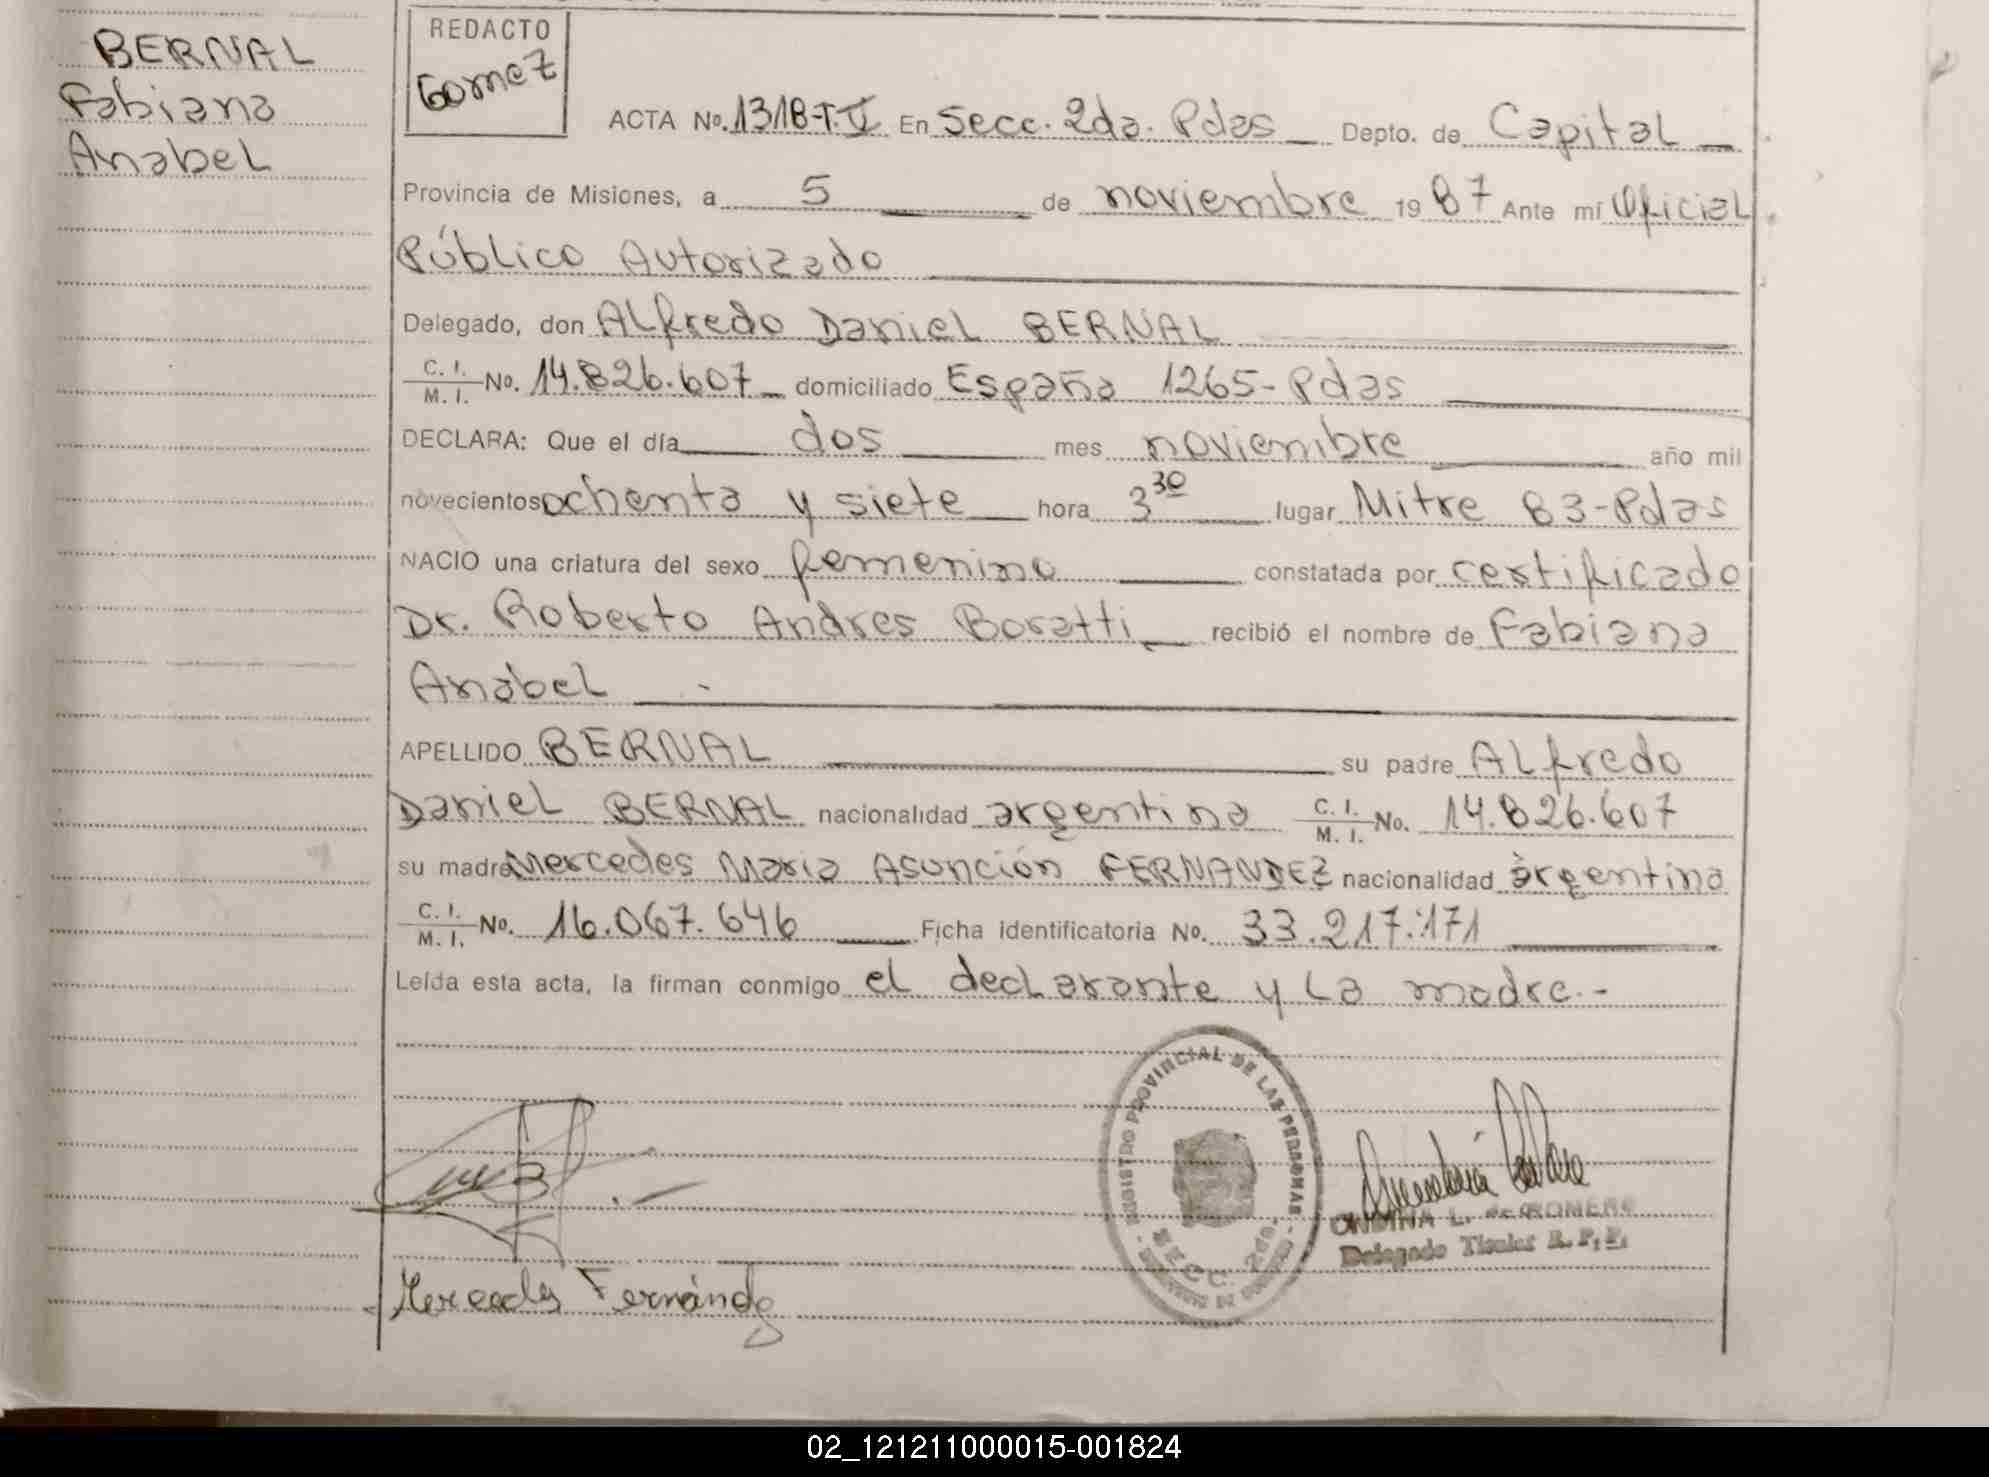 BERNAL
Fabiana
Anabel
REDACTO
Gomez
ACTA No. 1318-T.V En Secc. 2da. Pdas Depto. de Capital
Provincia de Misiones, a 5 de noviembre 1987 Ante mí Oficial
Público Autorizado
Delegado, don Alfredo Daniel BERNAL
C. I. M. I. No. 14.826.607 domiciliado España 1265-Pdas
DECLARA: Que el día dos mes noviembre año mil
novecientos ochenta y siete hora 3 30 lugar Mitre 83-Pdas
NACIO una criatura del sexo femenino constatada por certificado
Dr. Roberto Andres Boratti recibió el nombre de Fabiana
Anabel
APELLIDO BERNAL su padre Alfredo
Daniel BERNAL nacionalidad argentina C. I. M. I. No. 14.826.607
su madre Mercedes Maria Asunción FERNANDEZ nacionalidad argentina
C. I. M. I. No. 16.067.646 Ficha identificatoria No. 33.217.171
Leída esta acta, la firman conmigo el declarante y la madre.-
REGISTRO PROVINCIAL DE LAS PERSONAS
SECC. 2da.
ONDINA L. de ROMERO
Delegado Titular R. P. P.
Mercedes Fernández
02_121211000015-001824